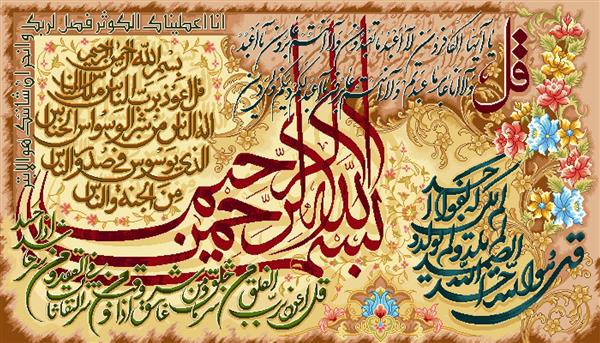 انا اعطیناک الکوثر فصل لربک
وانحر ان شانئک هو الابتر
قل یا ایها الکافرون لا اعبد ما تعبدون ولا انتم عابدون ما اعبد
ولا انا عابد ما عبدتم ولا انتم عابدون ما اعبد لکم دینکم ولی دین
بسم الله الرحمن الرحیم
قل اعوذ برب الناس ملک الناس
اله الناس من شر الوسواس الخناس
الذی یوسوس فی صدور الناس
من الجنة والناس
بسم الله الرحمن الرحیم
قل هو الله احد الله
الصمد لم یلد ولم یولد
ولم یکن له کفوا احد
قل اعوذ برب الفلق من شر ما خلق ومن شر غاسق اذا وقب ومن شر النفاثات فی العقد ومن شر حاسد اذا حسد